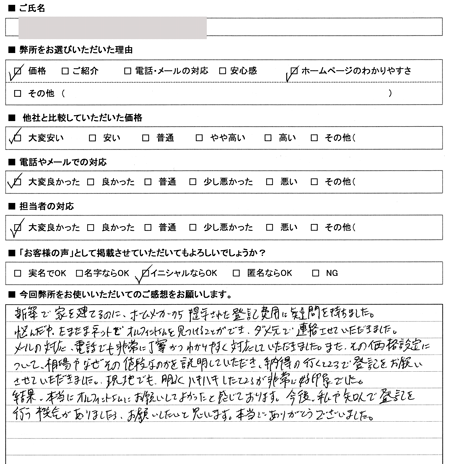 ■ ご氏名
■ 弊所をお選びいただいた理由
☑ 価格 □ ご紹介 □ 電話・メールの対応 □ 安心感 ☑ ホームページのわかりやすさ
□ その他 ( )
■ 他社と比較していただいた価格
☑ 大変安い □ 安い □ 普通 □ やや高い □ 高い □ その他(
■ 電話やメールでの対応
☑ 大変良かった □ 良かった □ 普通 □ 少し悪かった □ 悪い □ その他(
■ 担当者の対応
☑ 大変良かった □ 良かった □ 普通 □ 少し悪かった □ 悪い □ その他(
■ 「お客様の声」として掲載させていただいてもよろしいでしょうか?
□ 実名でOK □ 名字ならOK ☑ イニシャルならOK □ 匿名ならOK □ NG
■ 今回弊所をお使いいただいてのご感想をお願いします。
新築で家を建てるのに、ホームメーカーから提示された登記費用に疑問を持ちました。
悩んだ中、たまたまネットでオルフィットさんを見つけることができ、ダメ元で連絡させていただきました。
メールの対応、電話でも非常に丁寧かつわかりやすく対応していただきました。また、その価格設定に
ついて、相場やなぜその価格なのかを説明していただき、納得の行くところで登記をお願い
させていただきました。現地でも、明るくハキハキしたところが非常に好印象でした。
結果、本当にオルフィットさんにお願いしてよかったと感じております。今後、私や知人で登記を
行う機会がありましたら、お願いしたいと思います。本当にありがとうございました。